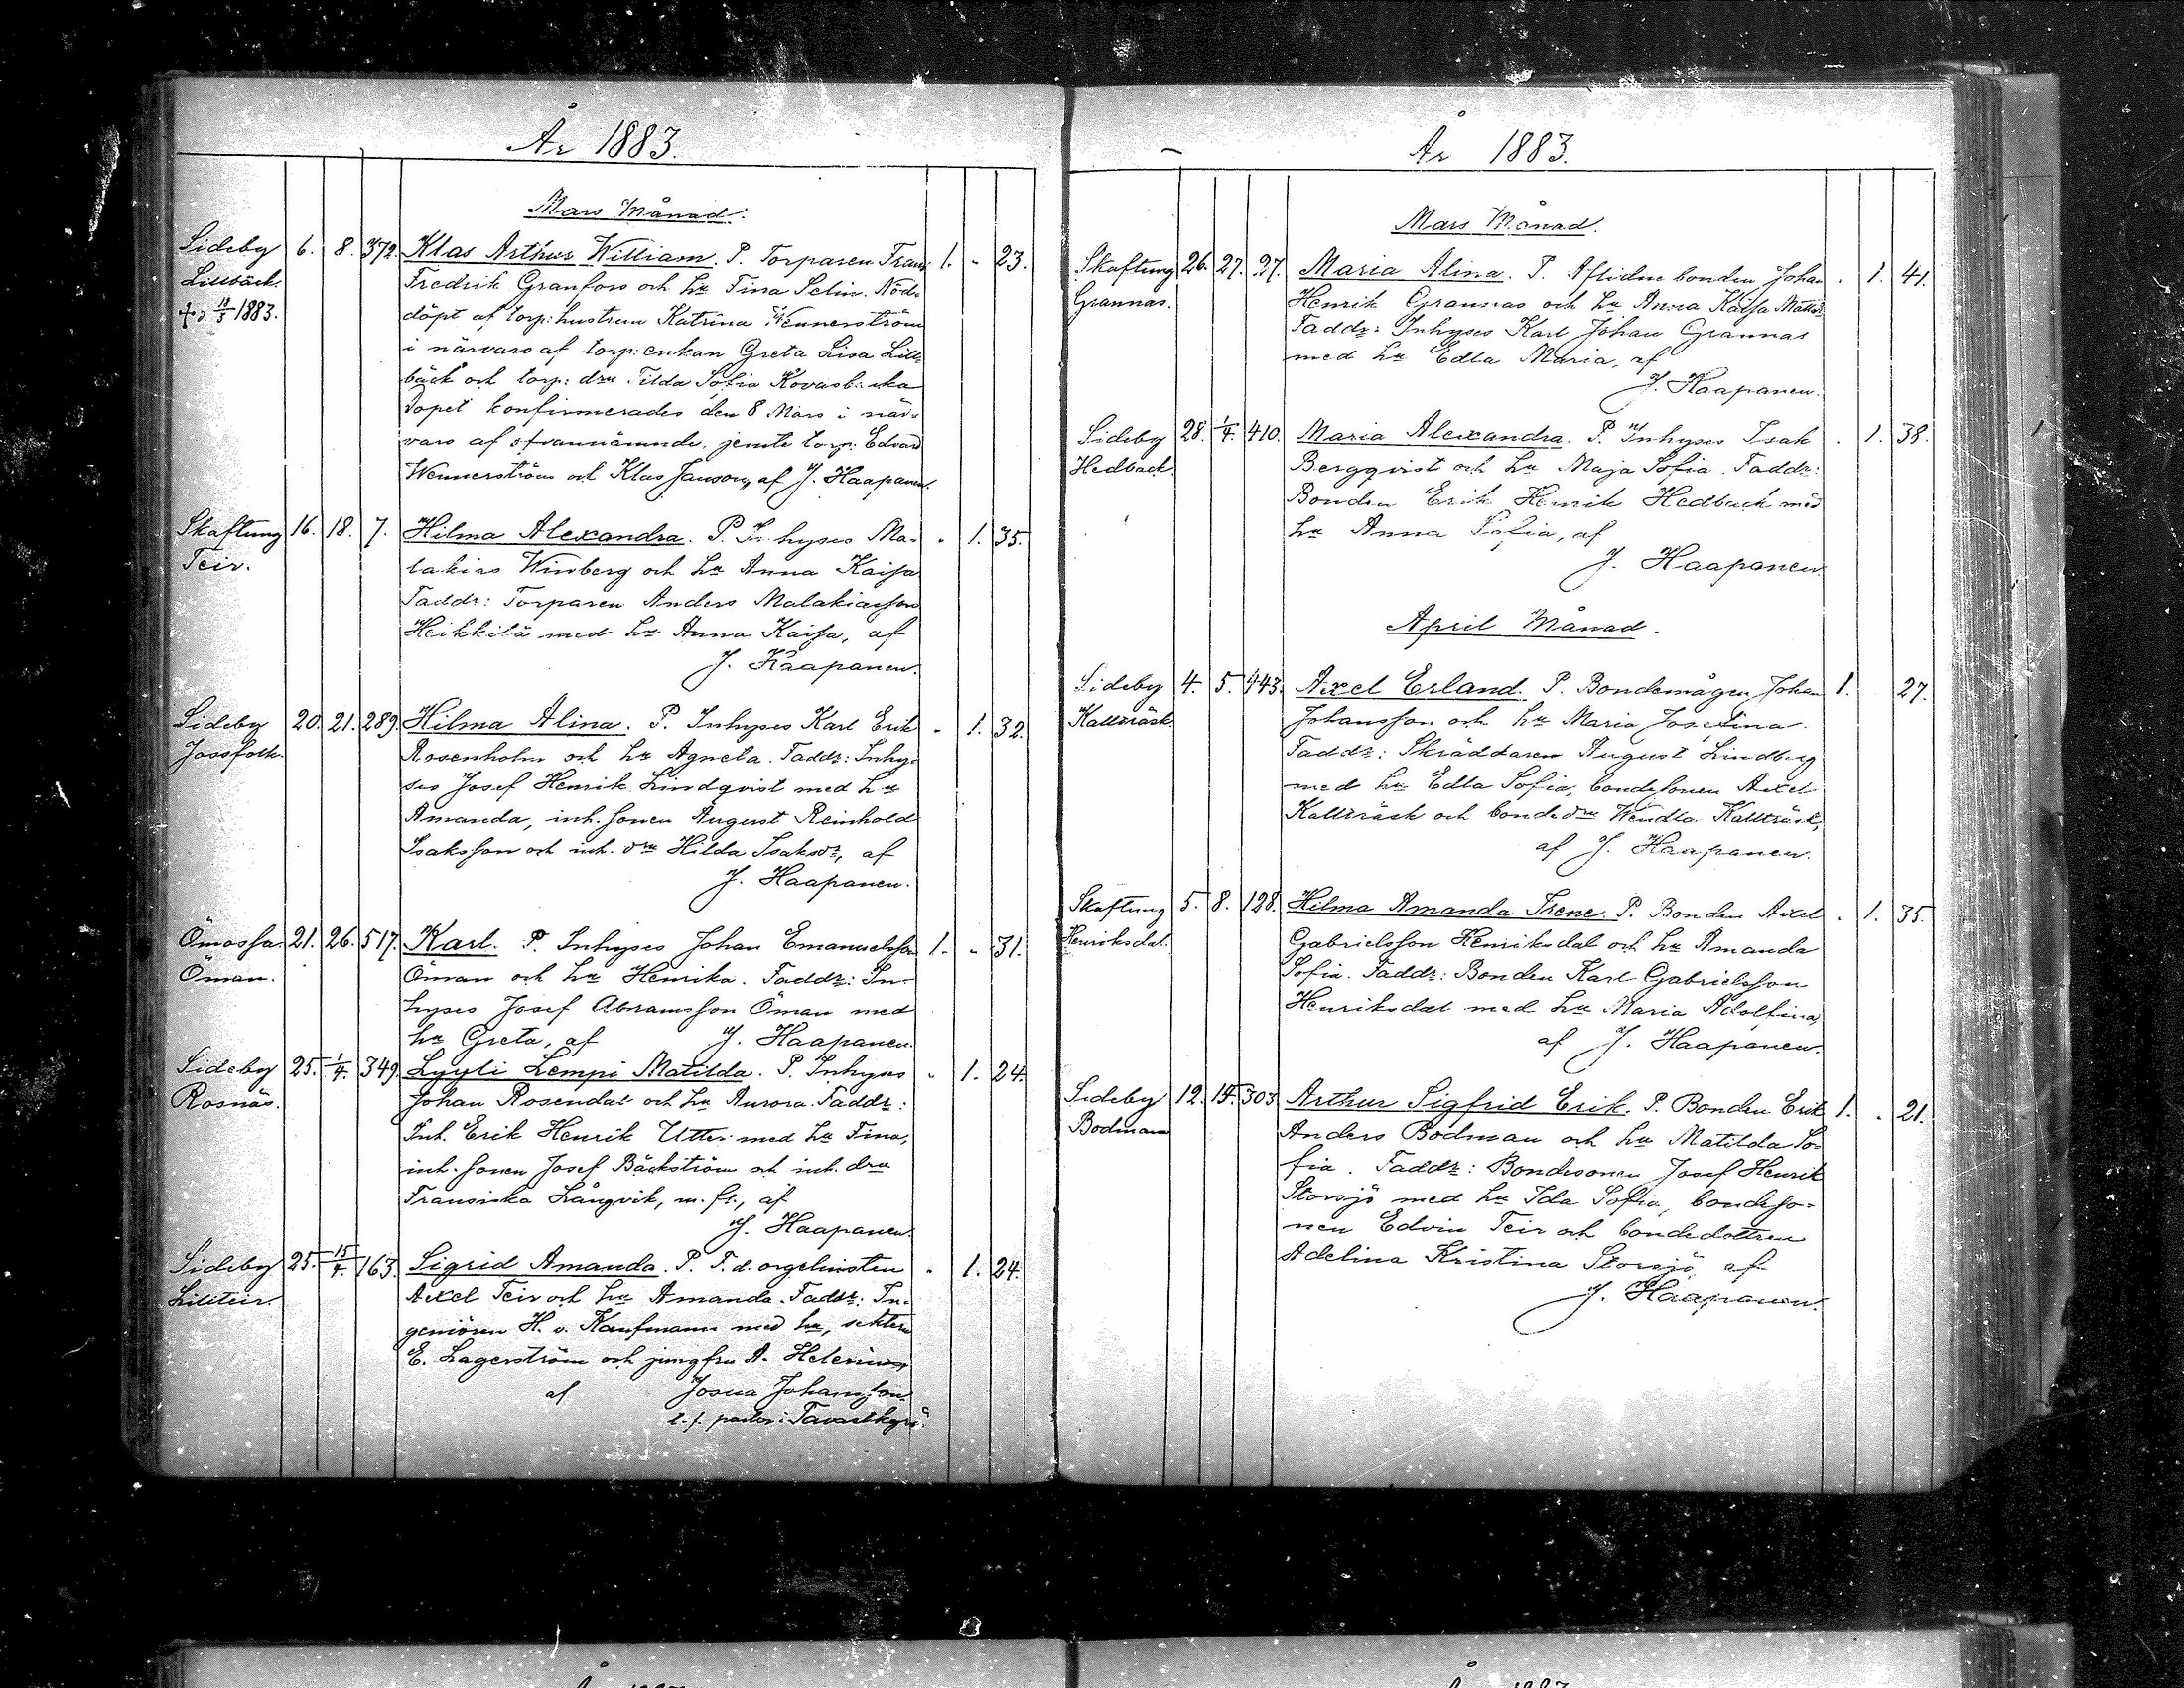 År 1883.
Mars Månad.
Sideby 6. 8. 372. Klas Arthur William. P. Torparen Frans 1. - 23.
Lillbäck. Fredrik Granfors och hu Tina Selin. Nöd-
† d. 1883. döpt af torp: hustrun Katrina Wennerström
i närvaro af torp: enkan Greta Lisa Lill-
bäck och torp: dru Tilda Sofia
Dopet konfirmerades den 8 Mars i när-
varo af ofvannämnde, jemte torp: Edvard
Wennerström och Klas Janson, af J. Haapanen.
Skaftung 16. 18. 7. Hilma Alexandra. P. Inhyses Ma- - 1. 35.
Teir. lakias Winberg och hu Anna Kaisa
Faddr: Torparen Anders Malakiasson
Heikkilä med hu Anna Kaisa, af
J. Haapanen.
Sideby 20. 21. 289. Hilma Alina. P. Inhyses Karl Erik - 1. 32.
Jossfolk. Rosenholm och hu Agneta. Faddr: Inhy-
ses Josef Henrik Lindqvist med hu
Amanda, inh. sonen August Reinhold
Isaksson och inh. dru Hilda Isaksdr, af
J. Haapanen.
Ömossa 21. 26. 517. Karl. P. Inhyses Johan Emanuelsson 1. - 31.
Öman. Öman och hu Henrika. Faddr: In-
hyses Josef Abramsson Öman med
hu Greta, af J. Haapanen.
Sideby 25. 1/4. 349. Lyyli Lempi Matilda. P. Inhyses - 1. 24.
Rosnäs. Johan Rosendal och hu Aurora. Faddr:
Inh. Erik Henrik Utter med hu Tina,
inh. sonen Josef Bäckström och inh. dru
Fransiska Långvik, m. fl., af
J. Haapanen.
Sideby 25. 15/4. 163. Sigrid Amanda. P. T. d. orgelnisten - 1. 24.
Lillteir. Axel Teir och hu Amanda. Faddr: In-
geniören H. v. Kaufmann med hu,
E. Lagerström och jungfru A. Helenius,
af Josua Johansson
t. f. pastor i Tavastkyrö.
År 1883.
Mars Månad.
Skaftung 26. 27. 27. Maria Alina. P. Aflidne bonden Johan - 1. 41.
Grannas. Henrik Grannas och hu Anna Kaisa Mattsdr
Faddr: Inhyses Karl Johan Grannas
med hu Edla Maria, af
J. Haapanen.
Sideby 28. 1/4. 410. Maria Alexandra. P. Inhyses Isak - 1. 38.
Hedback. Bergqvist och hu Maja Sofia. Faddr:
Bonden Erik Henrik Hedback med
hu Anna Sofia, af
J. Haapanen.
April Månad.
Sideby 4. 5. 443. Axel Erland. P. Bondemågen Johan 1. 27.
Kallträsk Johansson och hu Maria Josefina.
Faddr: Skräddaren August Lindberg
med hu Edla Sofia, bondesonen Axel
Kallträsk och bondedru Wendla Kallträsk,
af J. Haapanen.
Skaftung 5. 8. 128. Hilma Amanda Irene. P. Bonden Axel - 1. 35.
Henriksdal. Gabrielsson Henriksdal och hu Amanda
Sofia. Faddr: Bonden Karl Gabrielsson
Henriksdal med hu Maria Adolfina,
af J. Haapanen.
Sideby 12. 15. 303. Arthur Sigfrid Erik. P. Bonden Erik 1. - 21.
Bodman Anders Bodman och hu Matilda So-
fia. Faddr: Bondesonen Josef Henrik
Storsjö med hu Ida Sofia, bondeso-
nen Edvin Teir och bondedottren
Adelina Kristina Storsjö, af
J. Haapanen.